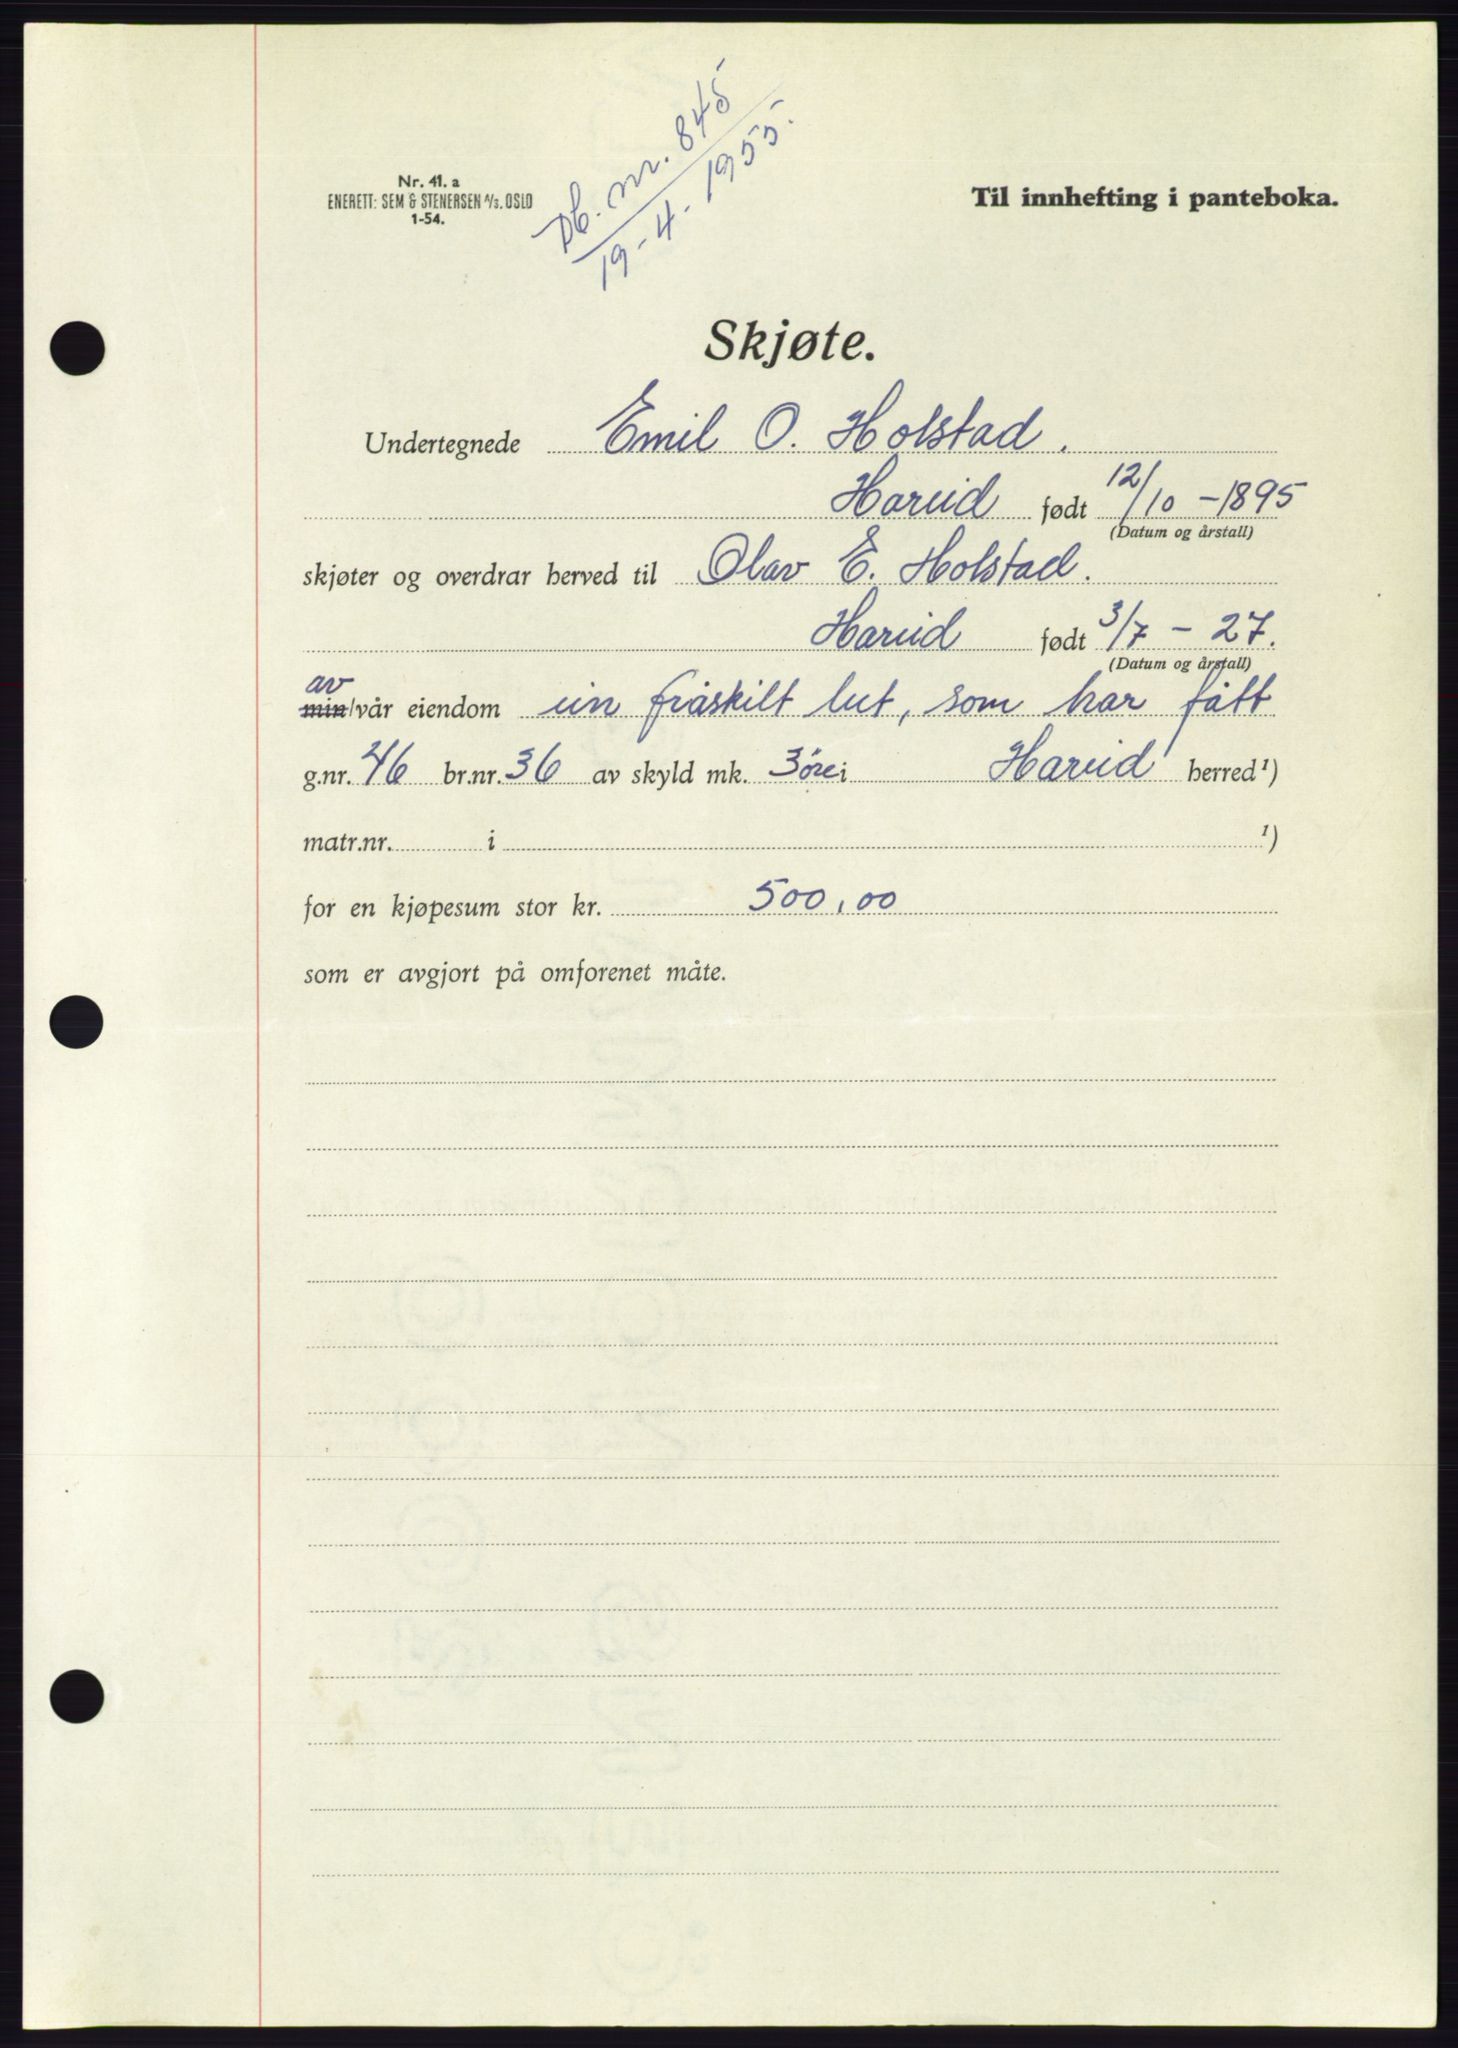 Nr. 41. a
ENERETT: SEM & STENERSEN A/S. OSLO
1-54.
Db. nr. 845
19-4-1955.
Til innhefting i panteboka.
Skjøte.
Undertegnede Emil O. Holstad.
Hareid født 12/10 - 1895
(Datum og årstall)
skjøter og overdrar herved til Olav E. Holstad.
Hareid født 3/7 - 27.
(Datum og årstall)
av
min/vår eiendom ein fråskilt lut, som har fått
g.nr. 46 br.nr. 36 av skyld mk. 3 øre i Hareid herred ¹)
matr.nr. i ¹)
for en kjøpesum stor kr. 500,00
som er avgjort på omforenet måte.